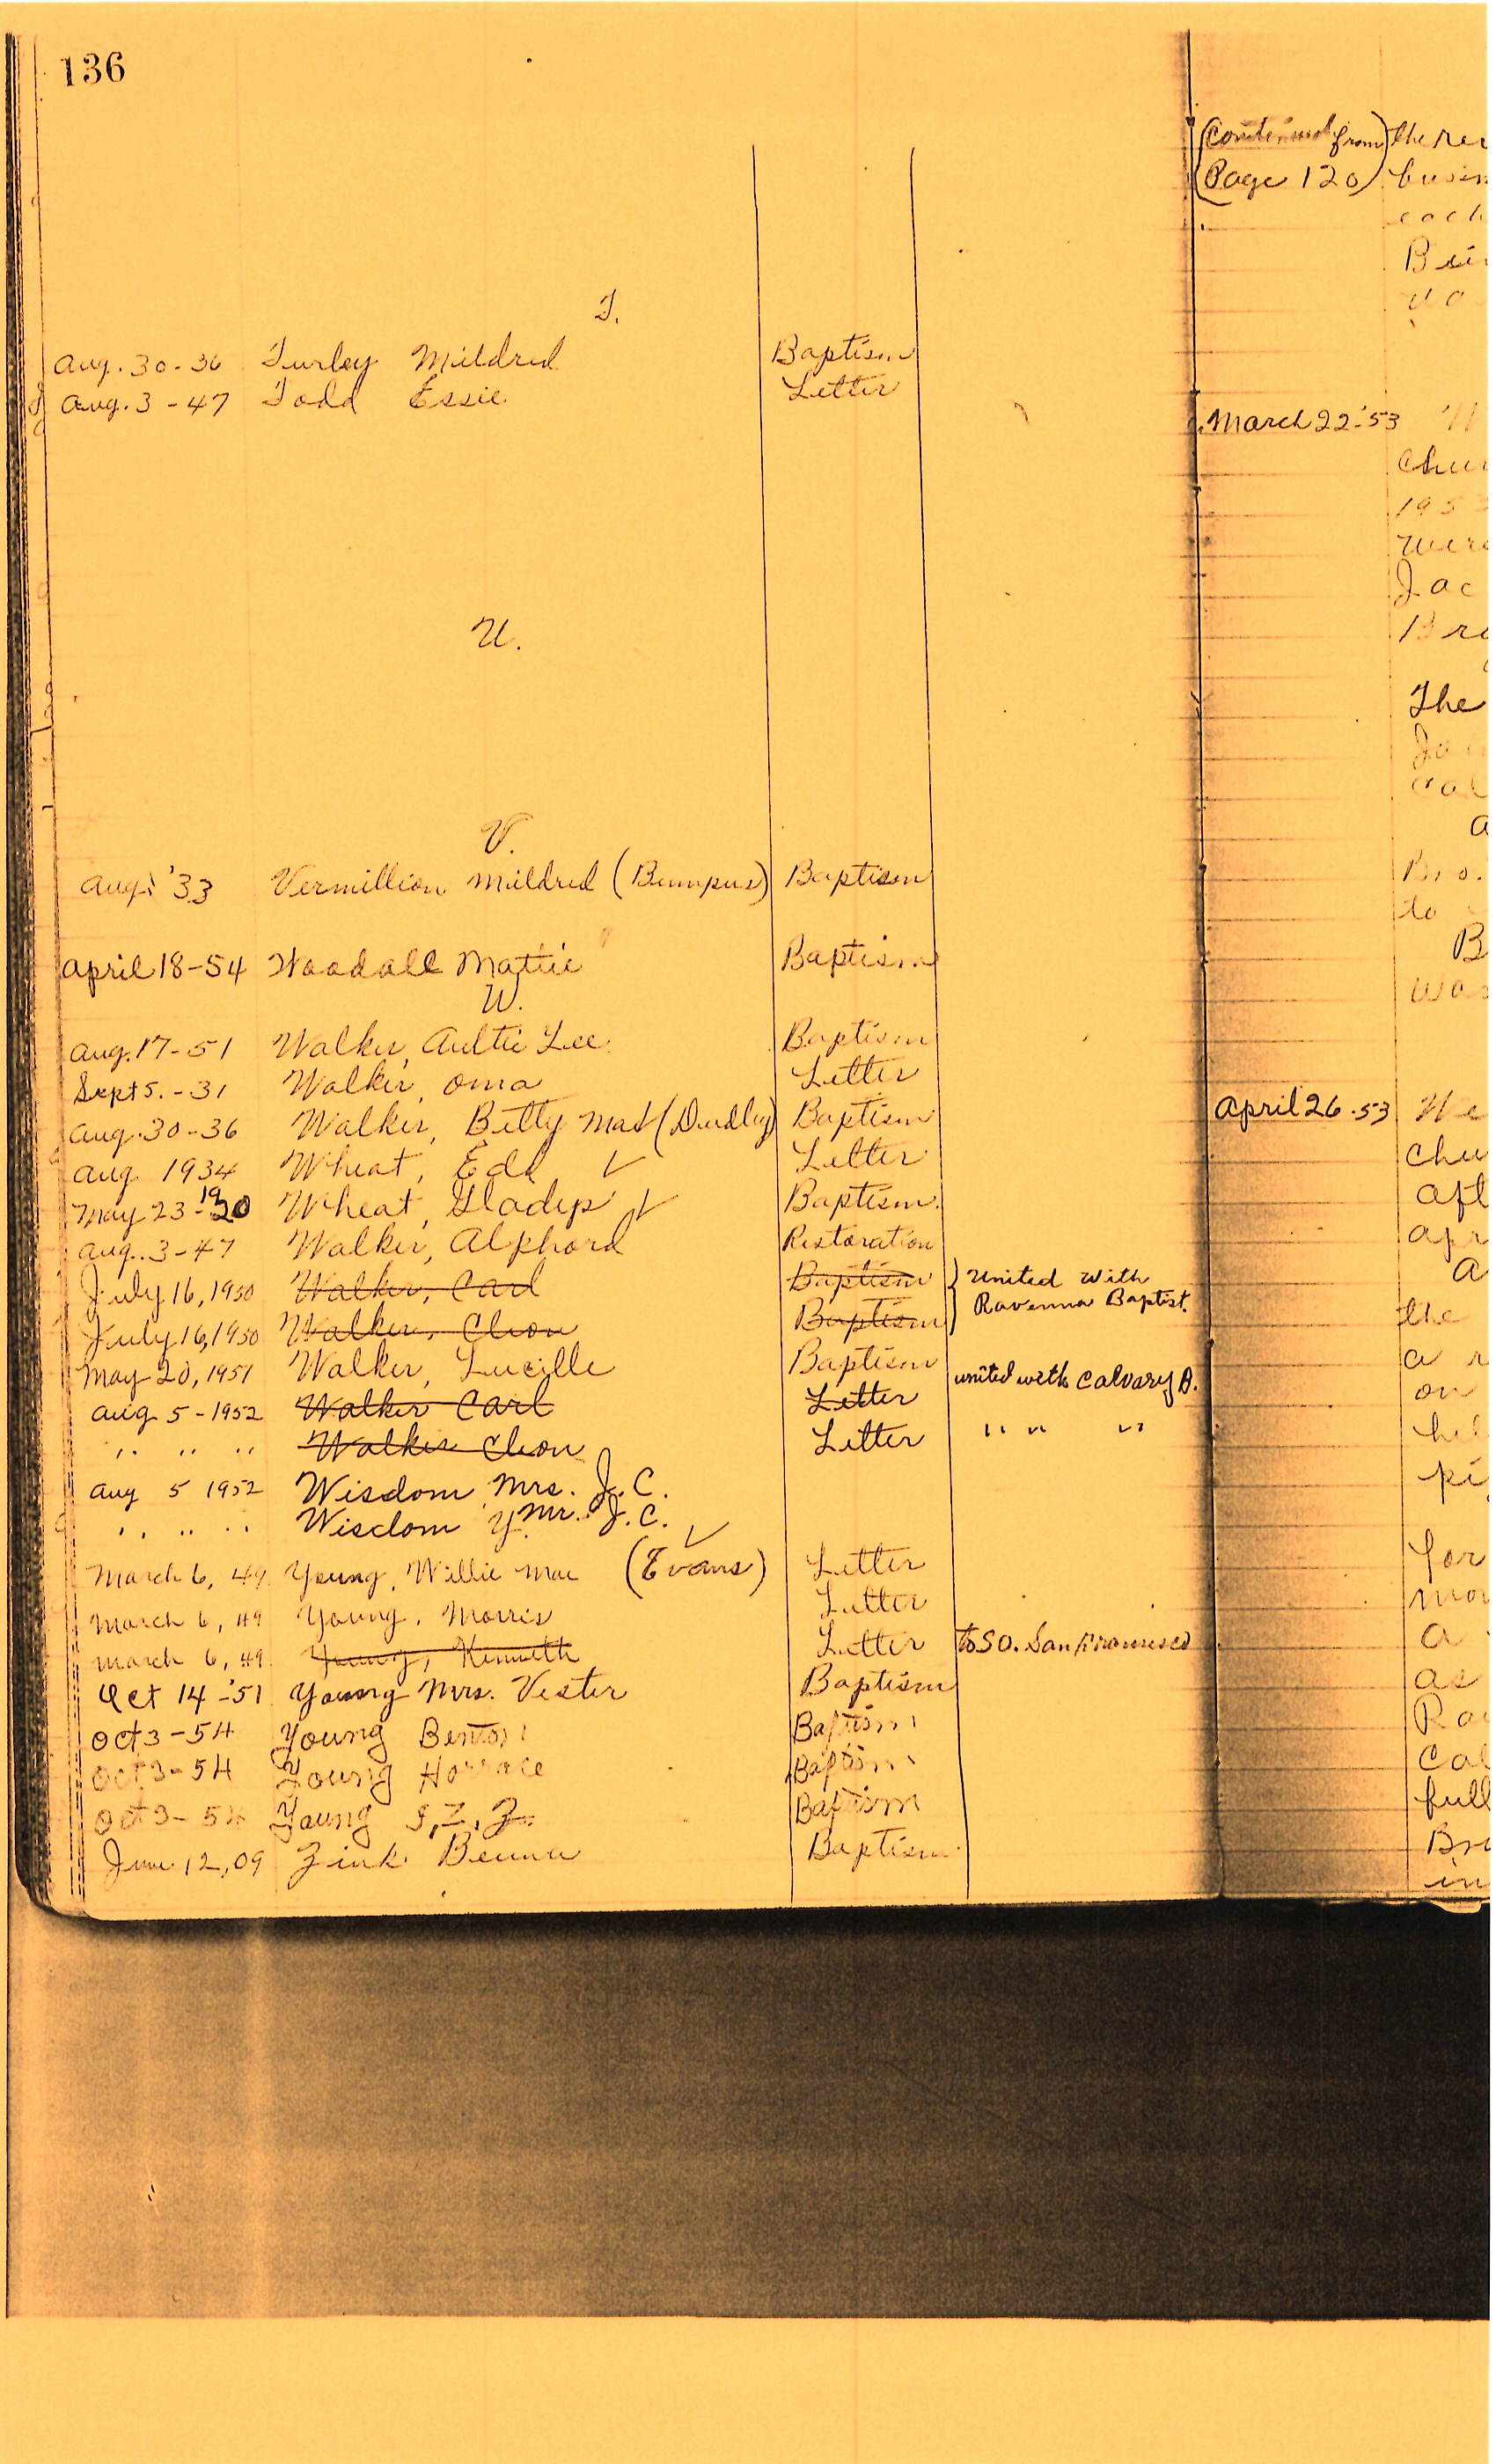 136
T.
Aug. 30-36 Turley Mildred Baptism
Aug. 3-47 Todd Essie Letter
U.
V.
Aug. '33 Vermillion Mildred (Bumpus) Baptism
April 18-54 Woodall Mattie Baptism
W.
Aug. 17-51 Walker, Aultie Lee Baptism
Sept 5.-31 Walker, Oma Letter
Aug. 30-36 Walker, Betty Mae (Dudley) Baptism
Aug 1934 Wheat, Edd ✓ Letter
May 23-1920 Wheat, Gladys ✓ Baptism.
Aug. 3-47 Walker, Alphord Restoration
July 16, 1950 Walker, Carl Baptism } United with
July 16, 1950 Walker, Cleon Baptism } Ravenna Baptist.
May 20, 1951 Walker, Lucille Baptism
Aug 5-1952 Walker Carl Letter united with Calvary B.
" " " Walker Cleon Letter " " "
Aug 5 1952 Wisdom Mrs. J. C.
" " " Wisdom Mr. J. C.
Y.
March 6, 49 Young, Willie Mae (Evans) ✓ Letter
March 6, 49 Young, Morris Letter
March 6, 49 Young, Kenneth Letter to So. San Francisco
Oct 14-'51 Young Mrs. Vester Baptism
Oct 3-54 Young Benton Baptism
Oct 3-54 Young Horrace Baptism
Oct 3-54 Young J, Z, Baptism
Z.
June 12, 09 Zink Beuna Baptism
(Continued from
Page 120)
the
each
March 22-'53
1953
The
to
April 26-53 We
the
a
on
a
as
in